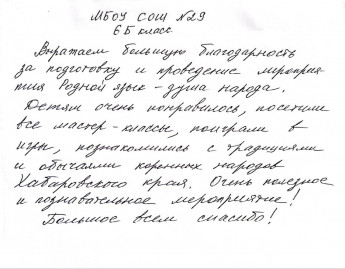 МБОУ СОШ №29
6 Б класс
Выражаем большую благодарность
за подготовку и проведение мероприя-
тия Родной язык - душа народа.
Детям очень понравилось, посетили
все мастер-классы, поиграли в
игры, познакомились с традициями
и обычаями коренных народов
Хабаровского края. Очень полезное
и познавательное мероприятие!
Большое всем спасибо!